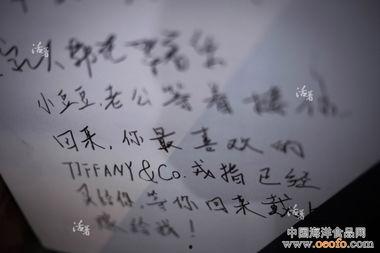 小豆豆,老公等着接你
回来,你最喜欢的
TIFFANY&Co.戒指已经
给你,等你回来戴!
嫁给我!
活着
活着
活着
活着
中国海洋食品网
www.oeofo.com